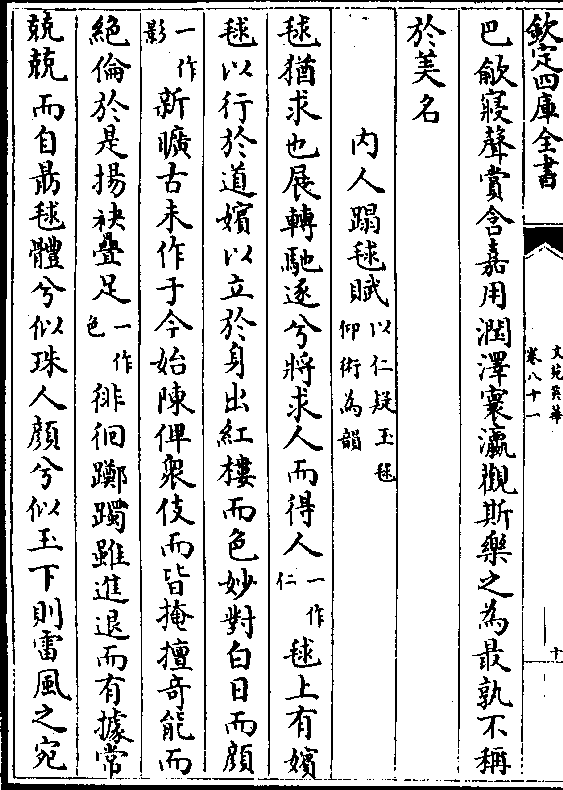 欽定四庫全書
文苑英華
卷八十一
十
巴歈寢聲賞含嘉用潤澤寰瀛觀斯樂之為最孰不稱
於美名
內人蹋毬賦以仁疑玉毬仰術為韻
毬猶求也展轉馳逐兮將求人而得人一作仁毬上有嬪
毬以行於道嬪以立於身出紅樓而色妙對白日而顔
一作影新曠古未作于今始陳俾衆伎而皆掩擅奇能而
絶倫於是揚袂疊足一作色徘徊躑躅雖進退而有據常
兢兢而自勗毬體兮似珠人顔兮似玉下則雷風之宛